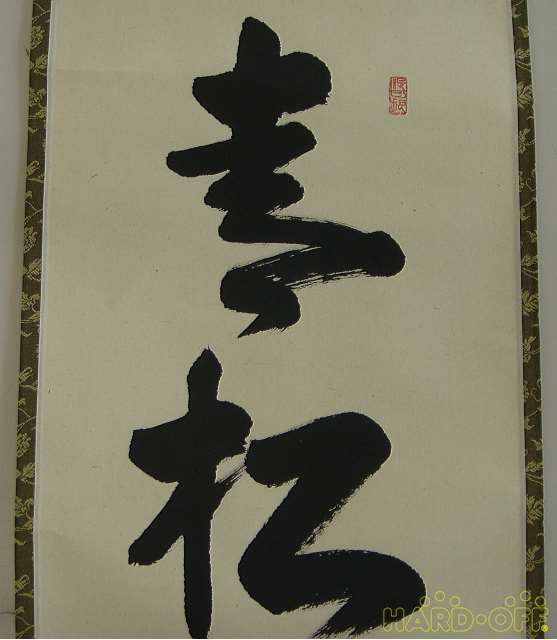 青
松
HARD·OFF